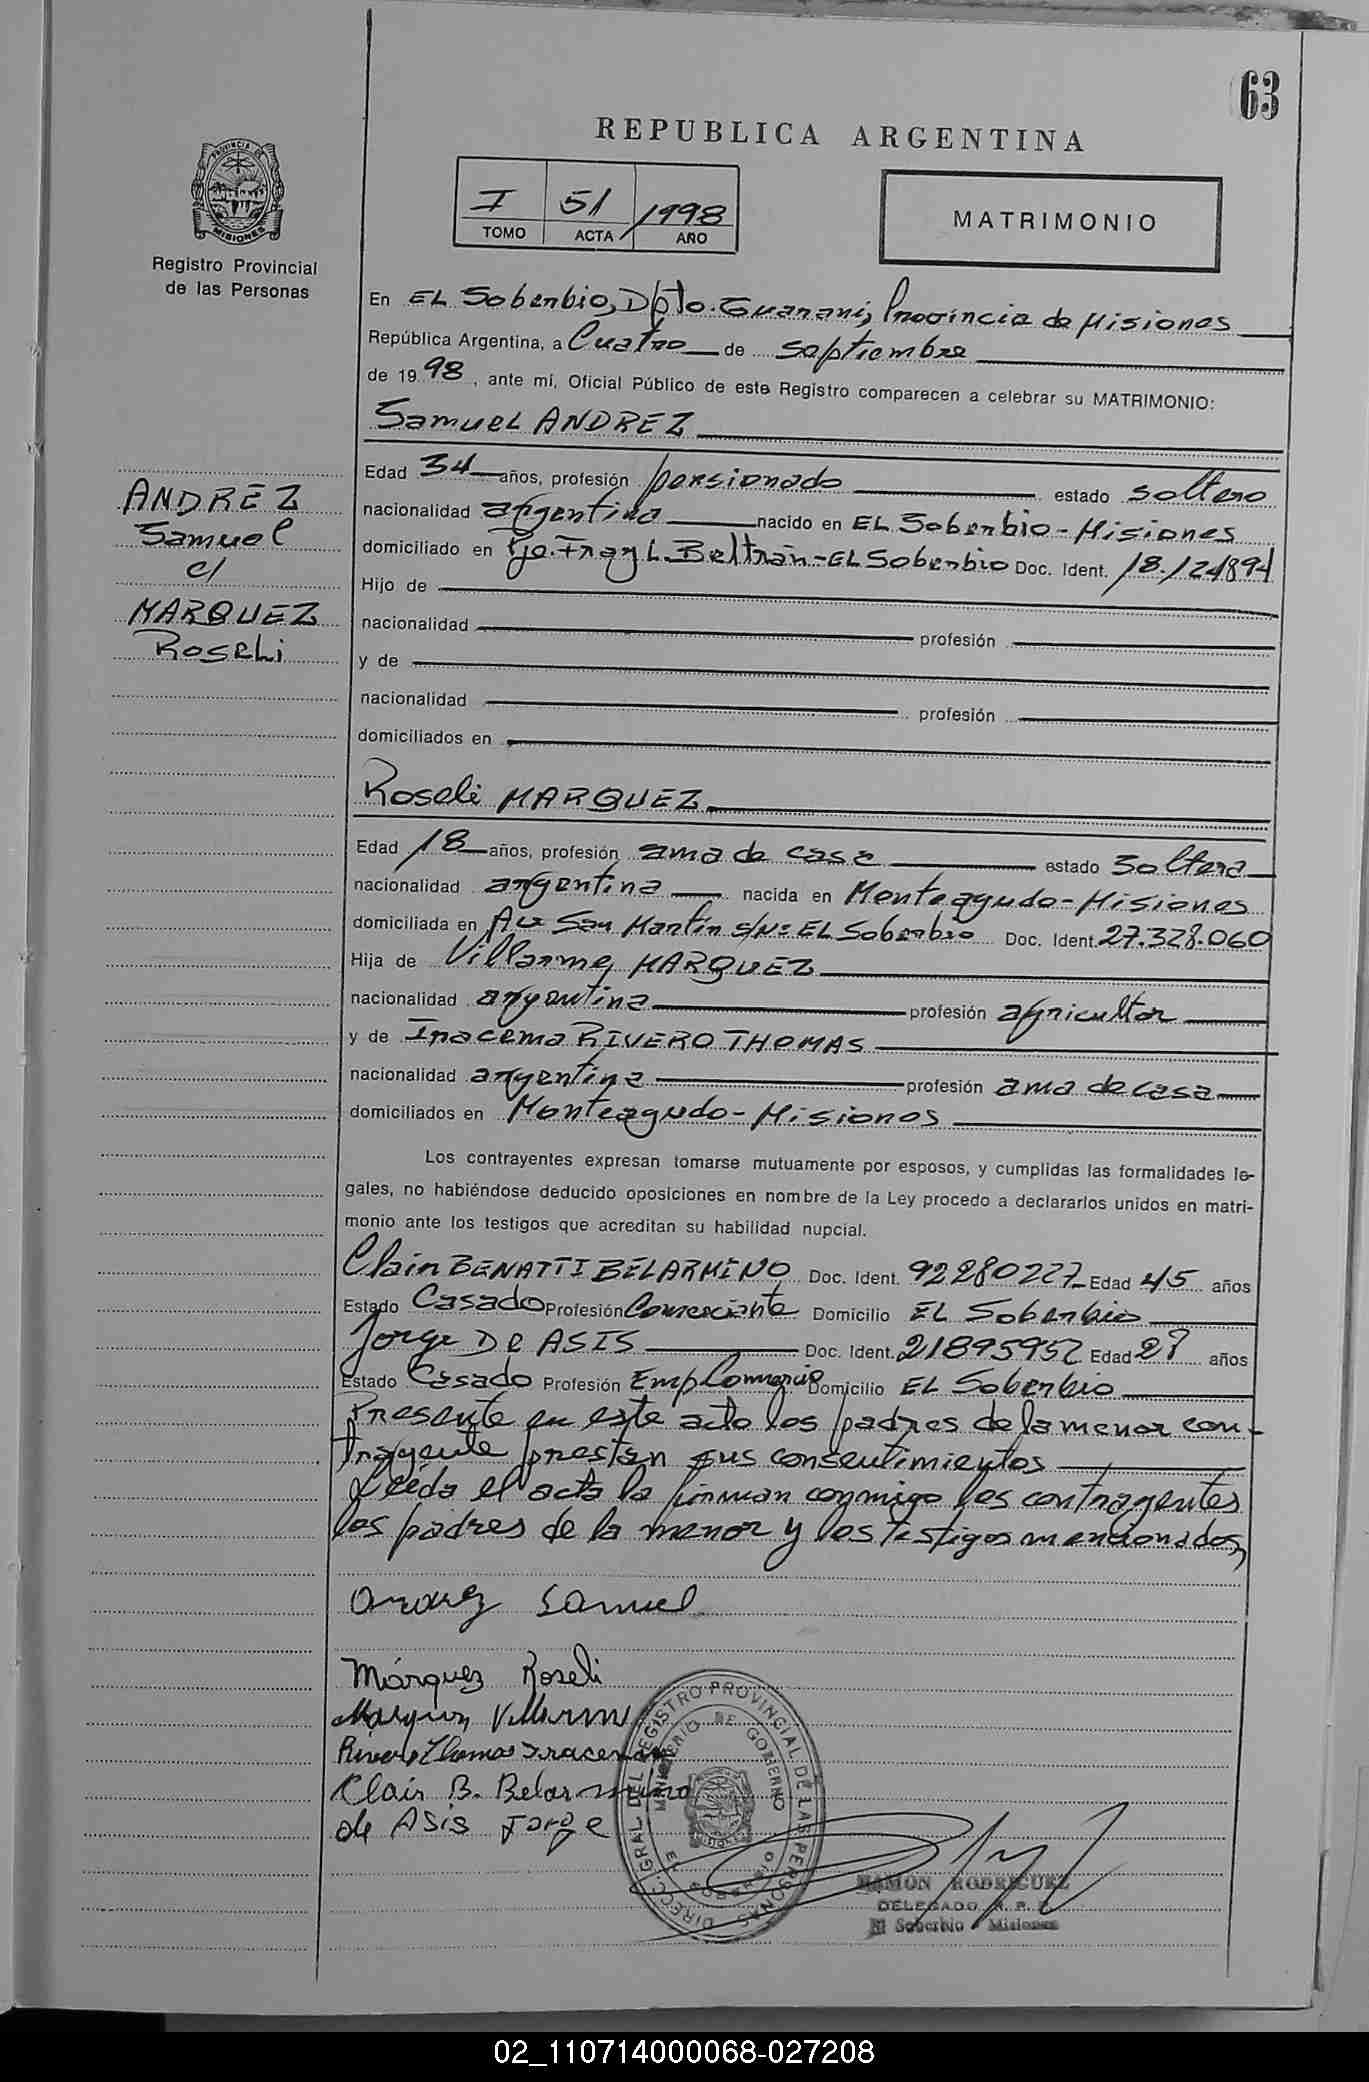 63
REPUBLICA ARGENTINA
I 51 1998
TOMO ACTA AÑO
MATRIMONIO
PROVINCIA DE MISIONES
Registro Provincial
de las Personas
En EL Soberbio, Dpto. Guarani, Provincia de Misiones
República Argentina, a Cuatro de septiembre
de 1998, ante mí, Oficial Público de este Registro comparecen a celebrar su MATRIMONIO:
Samuel ANDREZ
Edad 34 años, profesión pensionado estado soltero
nacionalidad argentina nacido en EL Soberbio - Misiones
domiciliado en Pje. Fray L. Beltrán - EL Soberbio Doc. Ident. 18.124894
Hijo de
nacionalidad profesión
y de
nacionalidad profesión
domiciliados en
ANDREZ
Samuel
c/
MARQUEZ
Roseli
Roseli MARQUEZ
Edad 18 años, profesión ama de casa estado soltera
nacionalidad argentina nacida en Monteagudo - Misiones
domiciliada en Av San Martín S/Nº EL Soberbio Doc. Ident. 27.328.060
Hija de Villarme MARQUEZ
nacionalidad argentina profesión agricultor
y de Iracema RIVERO THOMAS
nacionalidad argentina profesión ama de casa
domiciliados en Monteagudo - Misiones
Los contrayentes expresan tomarse mutuamente por esposos, y cumplidas las formalidades le-
gales, no habiéndose deducido oposiciones en nombre de la Ley procedo a declararlos unidos en matri-
monio ante los testigos que acreditan su habilidad nupcial.
Clair BENATTI BELARMINO Doc. Ident. 92280227 Edad 45 años
Estado Casado Profesión Comerciante Domicilio EL Soberbio
Jorge De ASIS Doc. Ident. 21895952 Edad 27 años
Estado Casado Profesión Emp Comercio Domicilio EL Soberbio
Presente en este acto los padres de la menor con-
trayente prestan sus consentimientos
Leída el acta la firman conmigo los contrayentes
los padres de la menor y los testigos mencionados,
Andrez Samuel
Márquez Roseli
Marquez Villarme
Rivero Thomas Iracema
Clair B. Belarmino
de Asis Jorge
DIRECC. GRAL. DEL REGISTRO PROVINCIAL DE LAS PERSONAS
MINISTERIO DE GOBIERNO
EL SOBERBIO
RAMON RODRIGUEZ
DELEGADO R. P. P.
El Soberbio Misiones
02_110714000068-027208